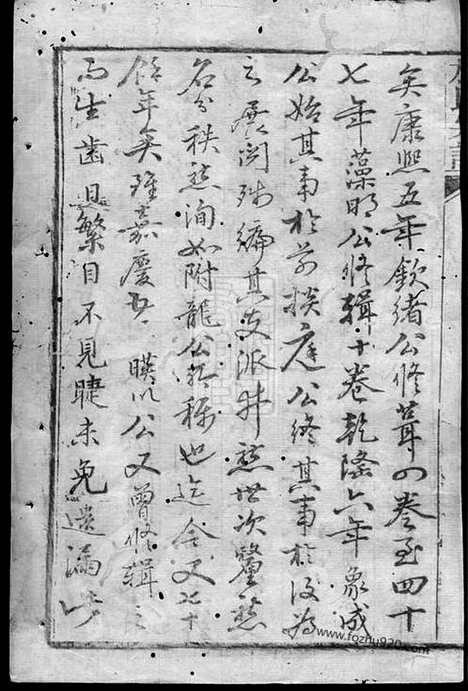 矣康熙五年欽緒公修葺四卷至四十
七年藻明公修辑十卷乾隆六年象成
公始其事於前掞庭公終其事於後為
之展閱殘編其支派井然世次釐然
名分秩然洵如附龍公所称也迄今又七十
餘年矣雖嘉慶廿一 暎以公又曾修辑之
而生齒日繁目不見睫未免遺漏
www.fozhu920.com